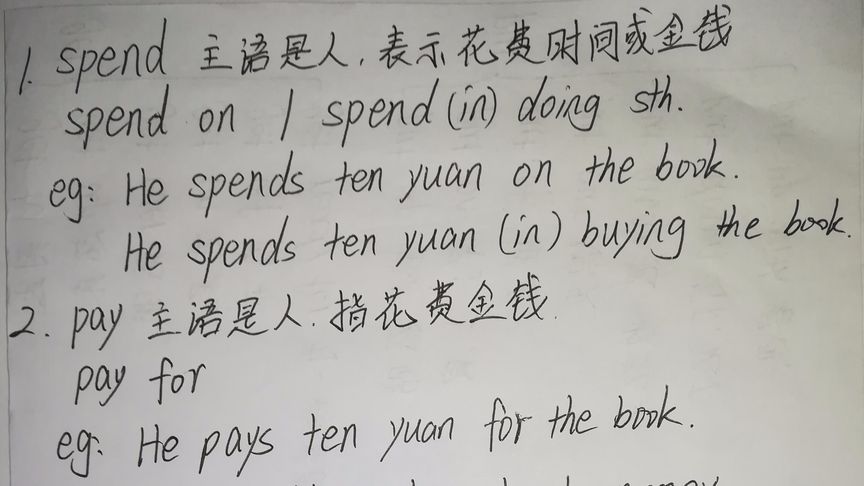 1. spend 主语是人, 表示花费时间或金钱
spend on / spend (in) doing sth.
eg: He spends ten yuan on the book.
He spends ten yuan (in) buying the book.
2. pay 主语是人. 指花费金钱.
pay for
eg: He pays ten yuan for the book.